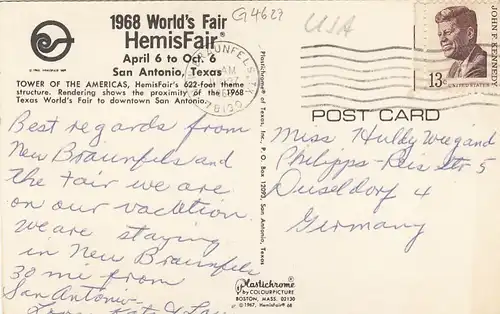 1968 World's Fair
HemisFair®
April 6 to Oct. 6
San Antonio, Texas
TOWER OF THE AMERICAS, HemisFair's 622-foot theme
structure. Rendering shows the proximity of the 1968
Texas World's Fair to downtown San Antonio.
Best regards from
New Braunfels and
the fair we are
on our vacation.
we are staying
in New Braunfels
30 mi from
San Antonio
G4627
USA
BRAUNFELS
AM
78130
Plastichrome® of Texas, Inc., P.O. Box 12093, San Antonio, Texas
Plastichrome®
by COLOURPICTURE
BOSTON, MASS. 02130
© 1967, HemisFair 68
JOHN F. KENNEDY
13c
UNITED STATES
POST CARD
Miss Huldy Wiegand
Philipps-Reis Str 5
Dusseldorf 4
Germany